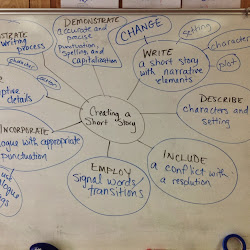 DEMONSTRATE
accurate and
precise
punctuation,
spelling and
capitalization
CHANGE
setting
character
plot
WRITE
a short story
with narrative
elements
STRATE
writing
process
character
details
Creating a
Short Story
DESCRIBE
characters and
setting
INCORPORATE
logue with appropriate
punctuation
EMPLOY
signal words/
transitions
INCLUDE
a conflict with
a resolution